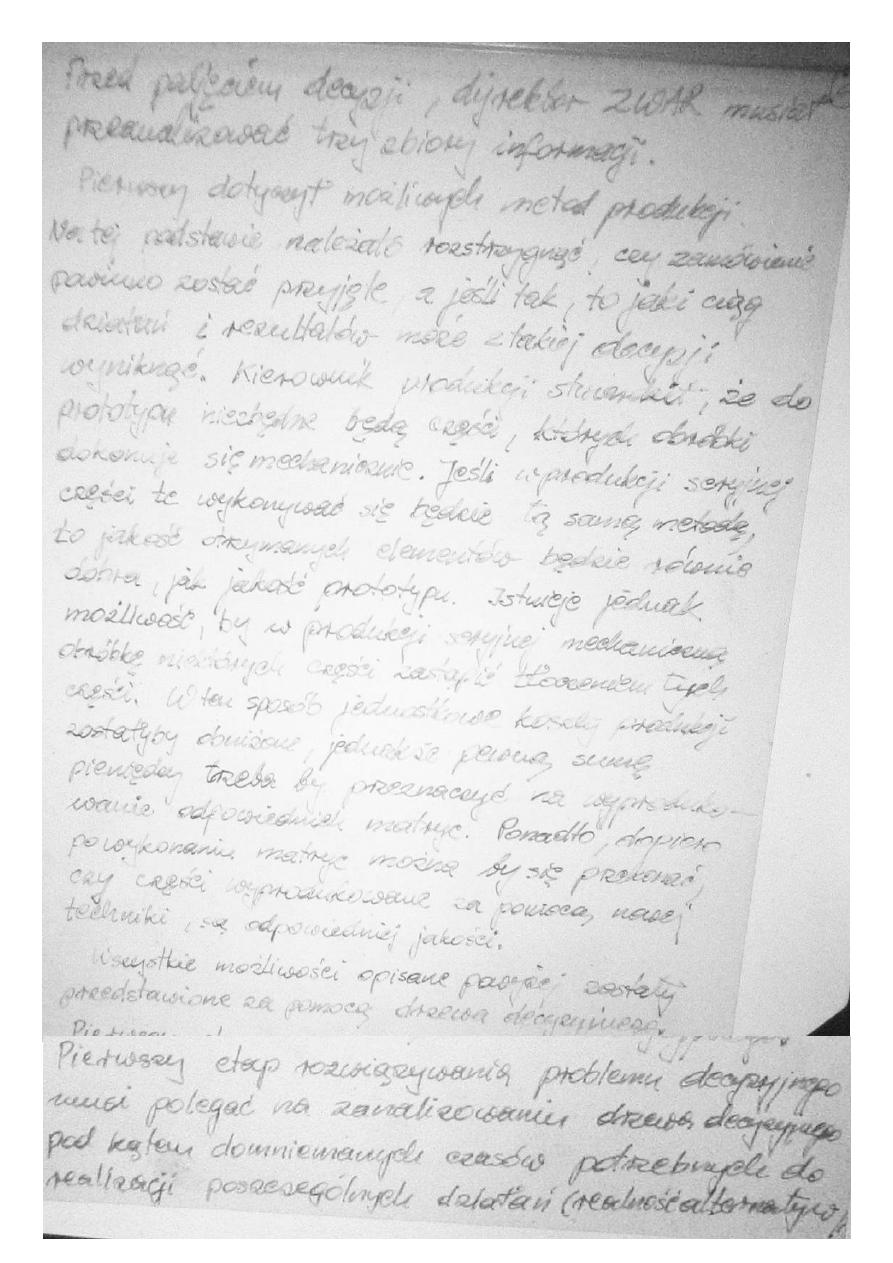 Przed podjęciem decyzji, dyrektor ZWAR musiał
przeanalizować trzy zbiory informacji.
Pierwszy dotyczył możliwych metod produkcji.
Na tej podstawie należało rozstrzygnąć, czy zamówienie
powinno zostać przyjęte, a jeśli tak, to jaki ciąg
działań i rezultatów może z takiej decyzji
wyniknąć. Kierownik produkcji stwierdził, że do
prototypu niezbędne będą części, których obróbki
dokonuje się mechanicznie. Jeśli w produkcji seryjnej
części te wykonywać się będzie tą samą metodą,
to jakość otrzymanych elementów będzie równie
dobra, jak jakość prototypu. Istnieje jednak
możliwość, by w produkcji seryjnej mechaniczną
obróbkę niektórych części zastąpić tłoczeniem tych
części. W ten sposób jednostkowe koszty produkcji
zostałyby obniżone, jednakże pewną sumę
pieniędzy trzeba by przeznaczyć na wyproduko-
wanie odpowiednich matryc. Ponadto, dopiero
po wykonaniu matryc można by się przekonać,
czy części wyprodukowane za pomocą nowej
techniki, są odpowiedniej jakości.
Wszystkie możliwości opisane powyżej zostały
przedstawione za pomocą drzewa decyzyjnego.
Pierwszy
Pierwszy etap rozwiązywania problemu decyzyjnego
musi polegać na zanalizowaniu drzewa decyzyjnego
pod kątem domniemanych czasów potrzebnych do
realizacji poszczególnych działań (realność alternatyw)